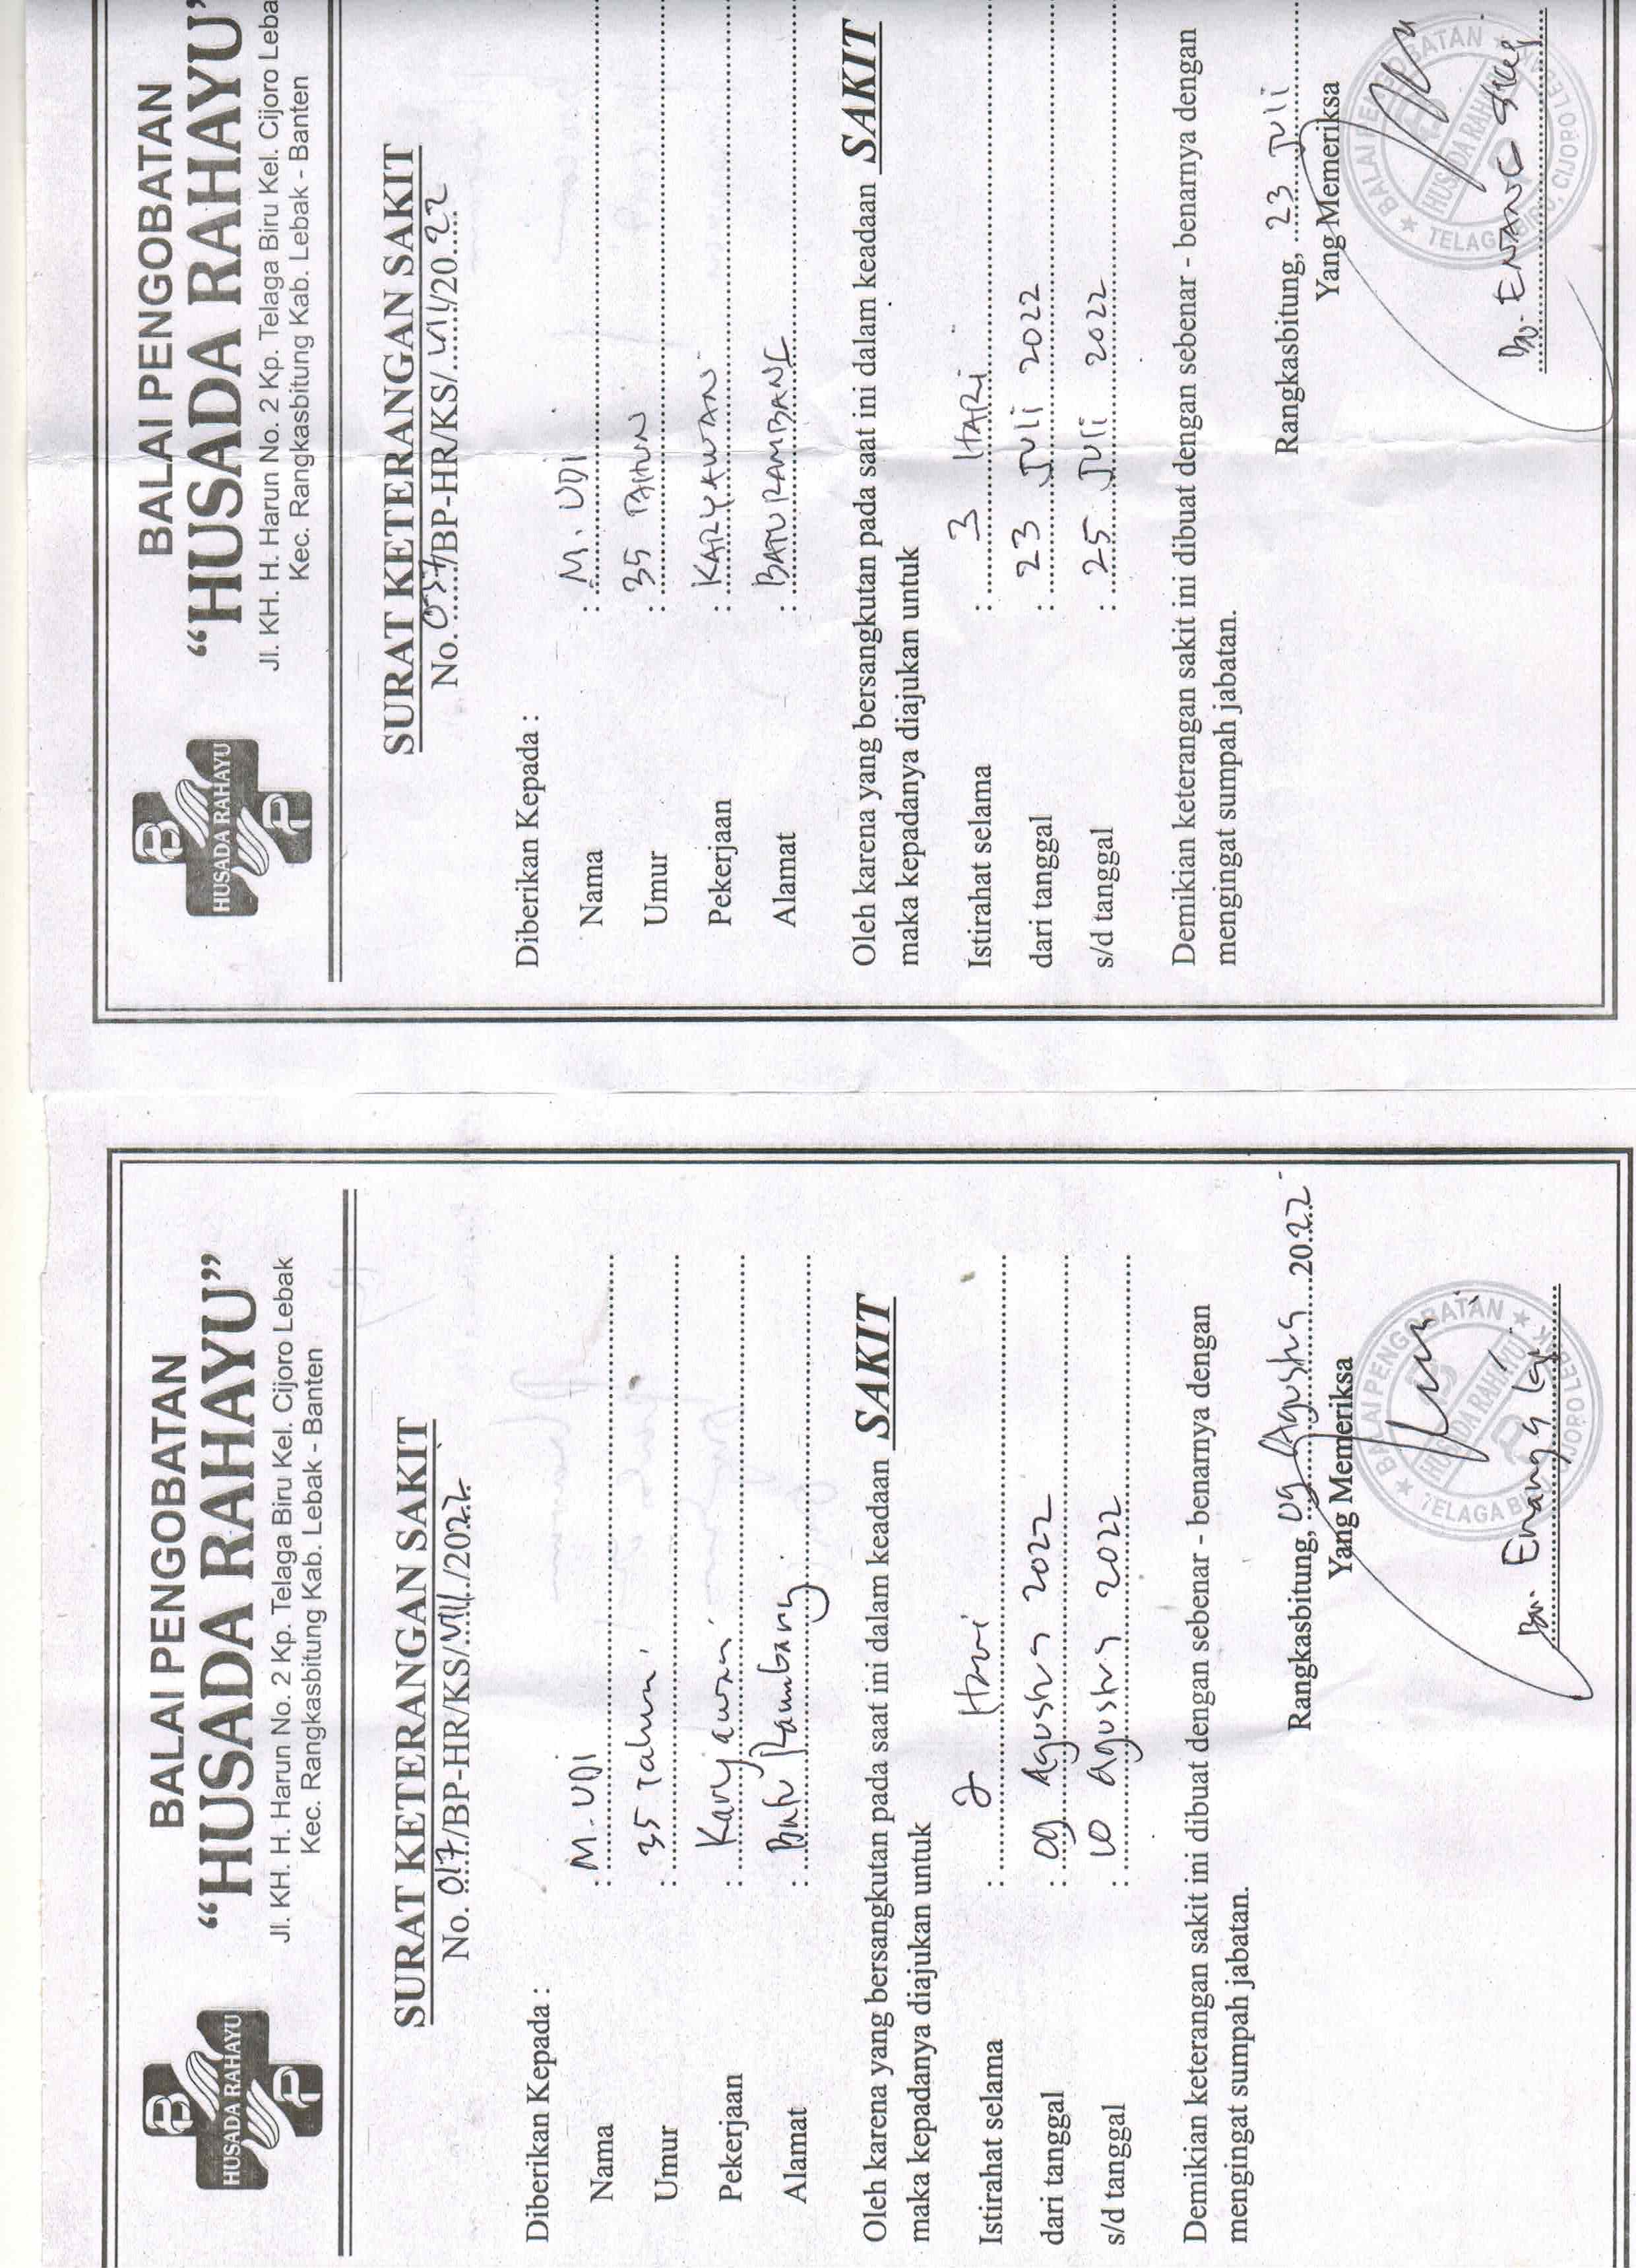 BALAI PENGOBATAN
"HUSADA RAHAYU"
Jl. KH. H. Harun No. 2 Kp. Telaga Biru Kel. Cijoro Lebak
Kec. Rangkasbitung Kab. Lebak - Banten
HUSADA RAHAYU
SURAT KETERANGAN SAKIT
No. 017/BP-HR/KS/VIII/2022
Diberikan Kepada :
Nama : M. UDI
Umur : 35 Tahun
Pekerjaan : Karyawan
Alamat : Batu Rambang
Oleh karena yang bersangkutan pada saat ini dalam keadaan SAKIT
maka kepadanya diajukan untuk
Istirahat selama : 2 Hari
dari tanggal : 09 Agustus 2022
s/d tanggal : 10 Agustus 2022
Demikian keterangan sakit ini dibuat dengan sebenar - benarnya dengan
mengingat sumpah jabatan.
Rangkasbitung, 09 Agustus 2022
Yang Memeriksa
BALAI PENGOBATAN
HUSADA RAHAYU
Enang
BALAI PENGOBATAN
"HUSADA RAHAYU"
Jl. KH. H. Harun No. 2 Kp. Telaga Biru Kel. Cijoro Leba
Kec. Rangkasbitung Kab. Lebak - Banten
HUSADA RAHAYU
SURAT KETERANGAN SAKIT
No. /BP-HR/KS/VII/2022
Diberikan Kepada :
Nama : M. UDI
Umur : 35 TAHUN
Pekerjaan : KARYAWAN
Alamat : BATU RAMBANG
Oleh karena yang bersangkutan pada saat ini dalam keadaan SAKIT
maka kepadanya diajukan untuk
Istirahat selama : 3 HARI
dari tanggal : 23 JULI 2022
s/d tanggal : 25 JULI 2022
Demikian keterangan sakit ini dibuat dengan sebenar - benarnya dengan
mengingat sumpah jabatan.
Rangkasbitung, 23 JULI
Yang Memeriksa
BALAI PENGOBATAN
HUSADA RAHAYU
ENANG